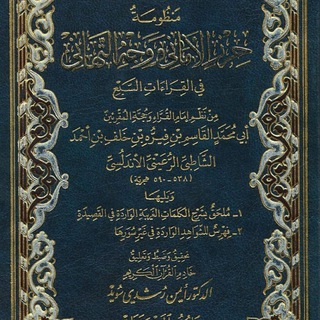 منظومة
حرز الأماني ووجه التهاني
في القراءات السبع
من نظم إمام القراء وحجة المقرئين
أبي محمد القاسم بن فيره بن خلف بن أحمد
الشاطبي الرعيني الأندلسي
(٥٣٨ - ٥٩٠ هجرية)
ويليها
١- ملحق بشرح الكلمات الغريبة الواردة في القصيدة
٢- فهرس للشواهد الواردة في غير سورها
تحقيق وضبط وتعليق
خادم القرآن الكريم
الدكتور أيمن رشدي سويد